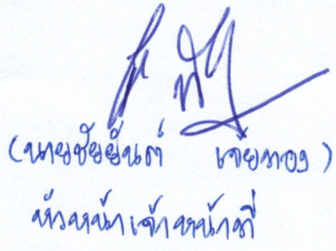 (นายชัยยันต์ เจ่ยทอง)
หัวหน้าเจ้าหน้าที่